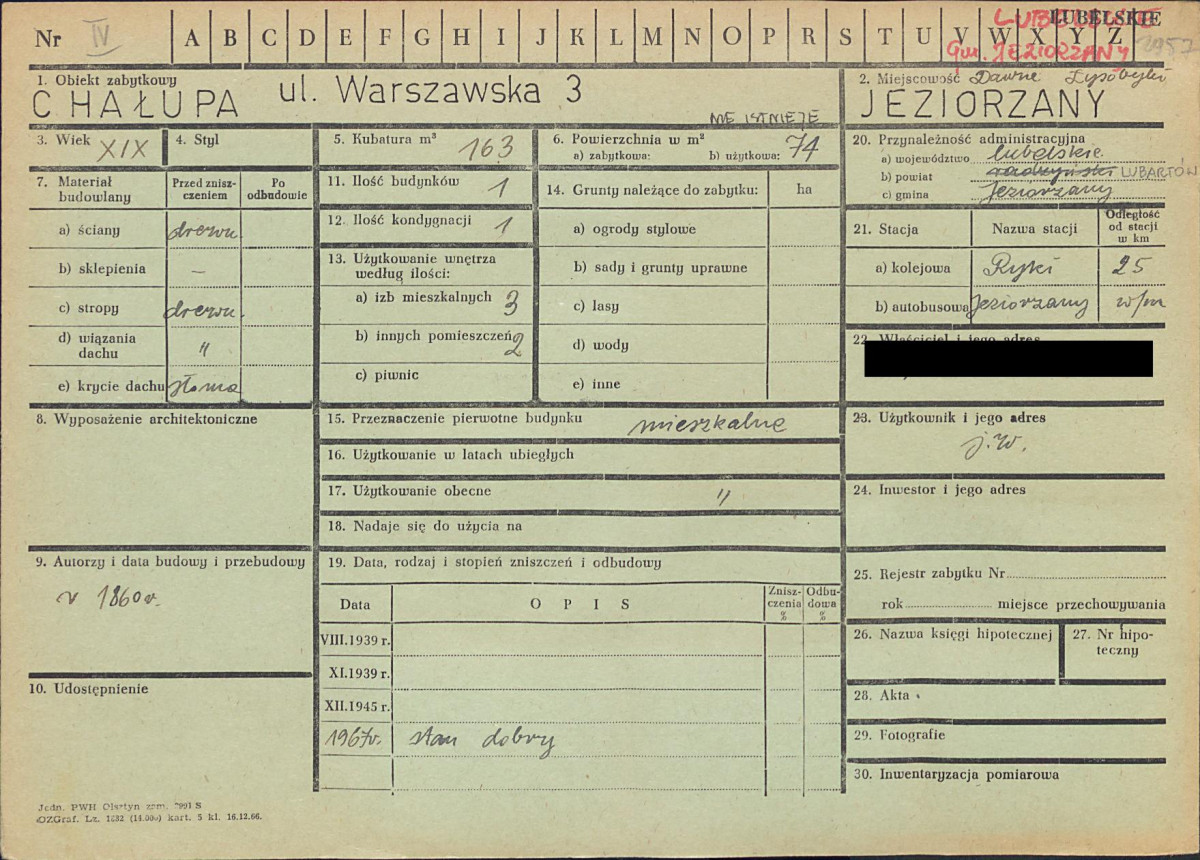 Nr IV A B C D E F G H I J K L M N O P R S T U V W X Y Z
LUBELSKIE
Gm. JEZIORZANY
1. Obiekt zabytkowy
CHAŁUPA ul. Warszawska 3
NIE ISTNIEJE
2. Miejscowość Dawne Łysobyki
JEZIORZANY
3. Wiek XIX
4. Styl
5. Kubatura m³ 163
6. Powierzchnia w m²
a) zabytkowa: b) użytkowa: 74
20. Przynależność administracyjna
a) województwo lubelskie
b) powiat radzyński LUBARTÓW
c) gmina Jeziorzany
7. Materiał budowlany
Przed zniszczeniem
Po odbudowie
a) ściany drewn.
b) sklepienia –
c) stropy drewn.
d) wiązania dachu "
e) krycie dachu słoma
11. Ilość budynków 1
12. Ilość kondygnacji 1
13. Użytkowanie wnętrza według ilości:
a) izb mieszkalnych 3
b) innych pomieszczeń 2
c) piwnic
14. Grunty należące do zabytku: ha
a) ogrody stylowe
b) sady i grunty uprawne
c) lasy
d) wody
e) inne
21. Stacja
Nazwa stacji
Odległość od stacji w km
a) kolejowa Ryki 25
b) autobusowa Jeziorzany w/m
22. Właściciel i jego adres
8. Wyposażenie architektoniczne
15. Przeznaczenie pierwotne budynku mieszkalne
16. Użytkowanie w latach ubiegłych
17. Użytkowanie obecne "
18. Nadaje się do użycia na
23. Użytkownik i jego adres
j.w.
24. Inwestor i jego adres
9. Autorzy i data budowy i przebudowy
r 1860 r.
10. Udostępnienie
19. Data, rodzaj i stopień zniszczeń i odbudowy
Data
OPIS
Zniszczenia %
Odbudowa %
VIII.1939 r.
XI.1939 r.
XII.1945 r.
1967r. stan dobry
25. Rejestr zabytku Nr
rok miejsce przechowywania
26. Nazwa księgi hipotecznej
27. Nr hipoteczny
28. Akta
29. Fotografie
30. Inwentaryzacja pomiarowa
Jedn. PWH Olsztyn zam. 2991 S
OZGraf. Lz. 1832 (14.000) kart. 5 kl. 16.12.66.